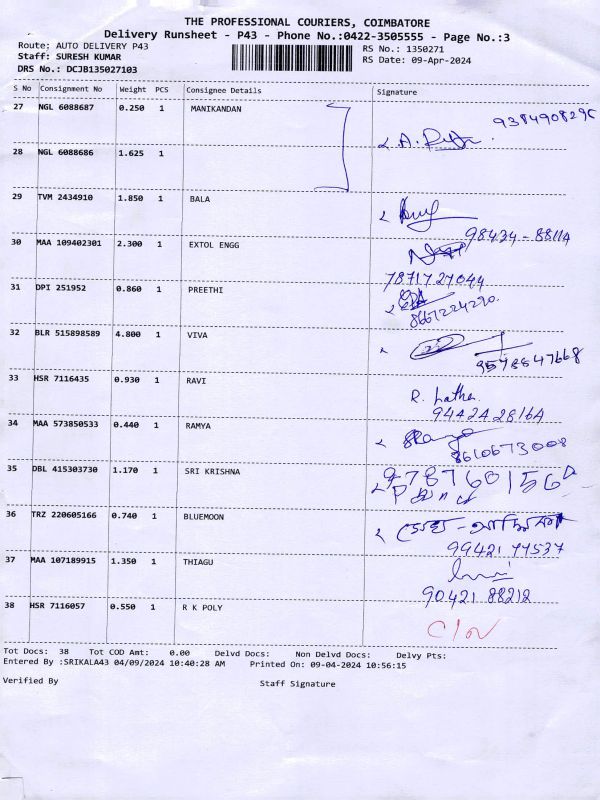 THE PROFESSIONAL COURIERS, COIMBATORE
Delivery Runsheet - P43 - Phone No.:0422-3505555 - Page No.:3
Route: AUTO DELIVERY P43 RS No.: 1350271
Staff: SURESH KUMAR RS Date: 09-Apr-2024
DRS No.: DCJB135027103
S No Consignment No Weight PCS Consignee Details Signature
27 NGL 6088687 0.250 1 MANIKANDAN
28 NGL 6088686 1.625 1
29 TVM 2434910 1.850 1 BALA
98434-88114
30 MAA 109402301 2.300 1 EXTOL ENGG
7871727044
31 DPI 251952 0.860 1 PREETHI
8667224270
32 BLR 515898589 4.800 1 VIVA
9578547668
33 HSR 7116435 0.930 1 RAVI R. Latha
9442428164
34 MAA 573850533 0.440 1 RAMYA Ramya
8610673008
35 DBL 415303730 1.170 1 SRI KRISHNA 9787601564
36 TRZ 220605166 0.740 1 BLUEMOON
99421 77537
37 MAA 107189915 1.350 1 THIAGU
90421 88212
38 HSR 7116057 0.550 1 R K POLY
Tot Docs: 38 Tot COD Amt: 0.00 Delvd Docs: Non Delvd Docs: Delvy Pts:
Entered By :SRIKALA43 04/09/2024 10:40:28 AM Printed On: 09-04-2024 10:56:15
Verified By Staff Signature